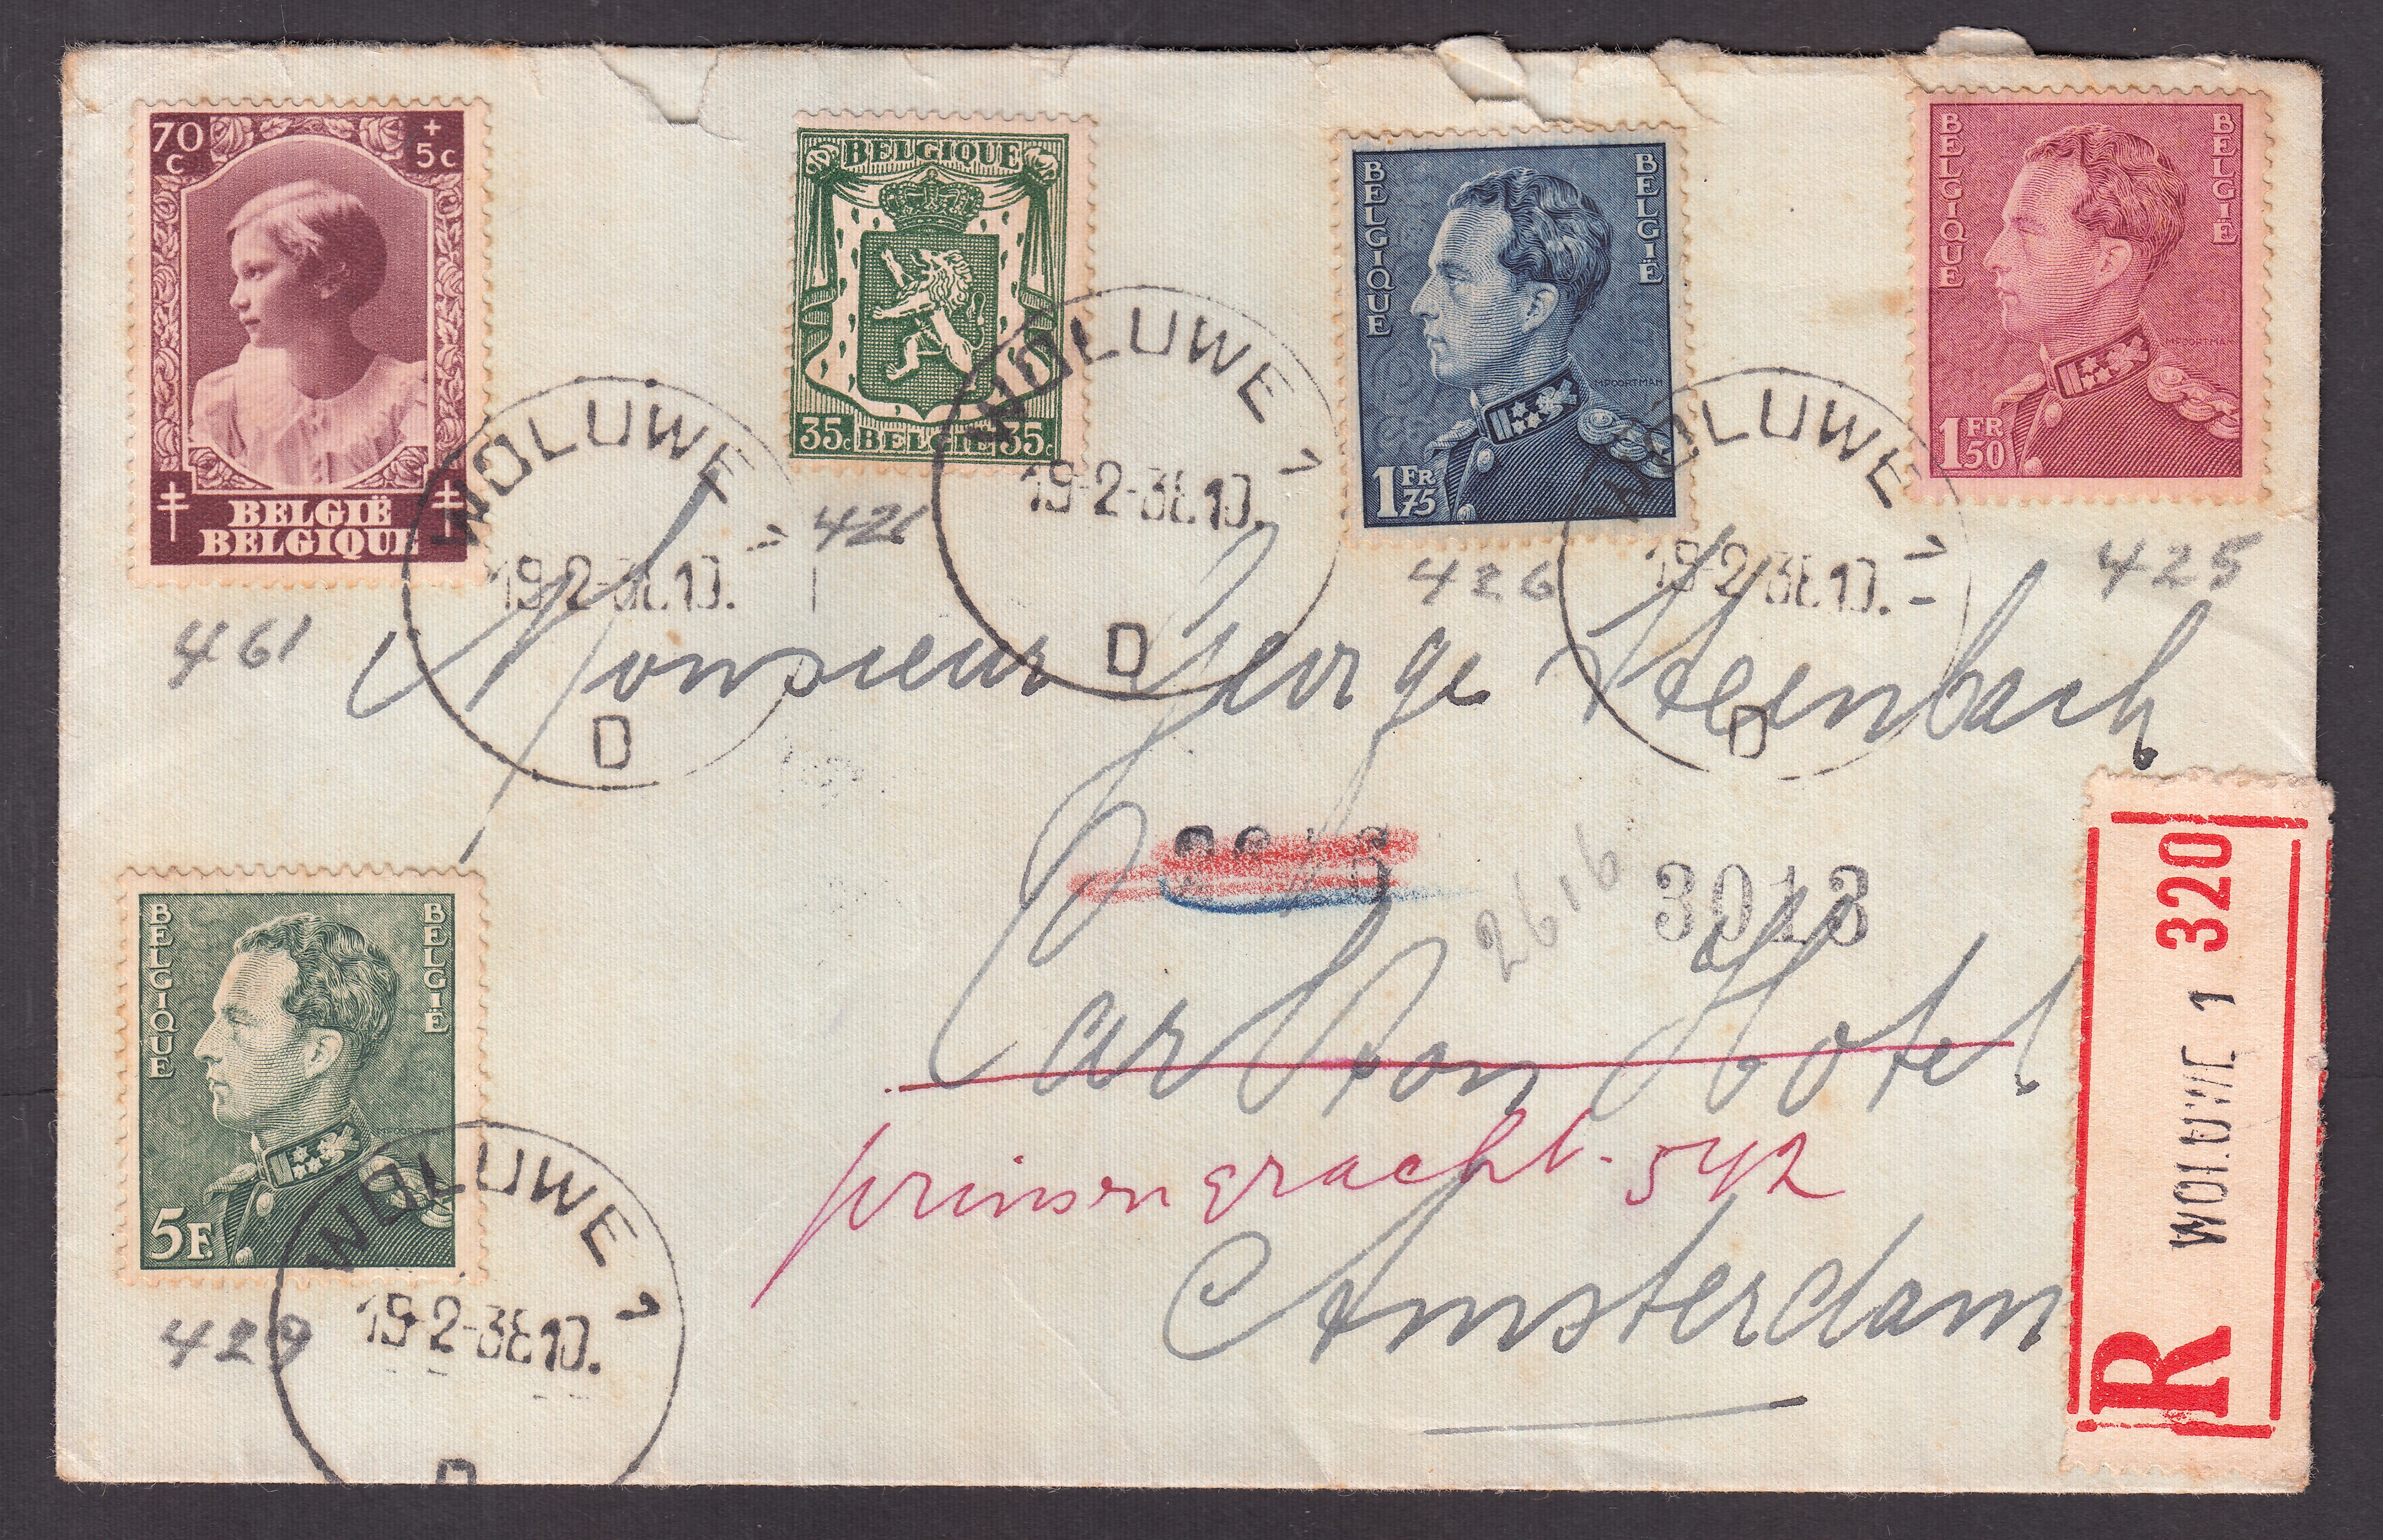 70 c + 5c
BELGIË
BELGIQUE
BELGIQUE
35c BELGIE 35c
BELGIQUE BELGIË
MPOORTMAN
1 FR 75
BELGIQUE BELGIË
MPOORTMAN
1 FR 50
WOLUWE 1
19-2-38 10.
D
WOLUWE 1
19-2-38 10.
D
WOLUWE 1
19-2-38 10.
D
461
421
426
425
Monsieur George Steenbach
2616
3013
Carlton Hotel
prinsengracht. 542
Amsterdam
BELGIQUE BELGIË
MPOORTMAN
5F.
WOLUWE 1
19-2-38 10.
D
429
R WOLUWE 1 320